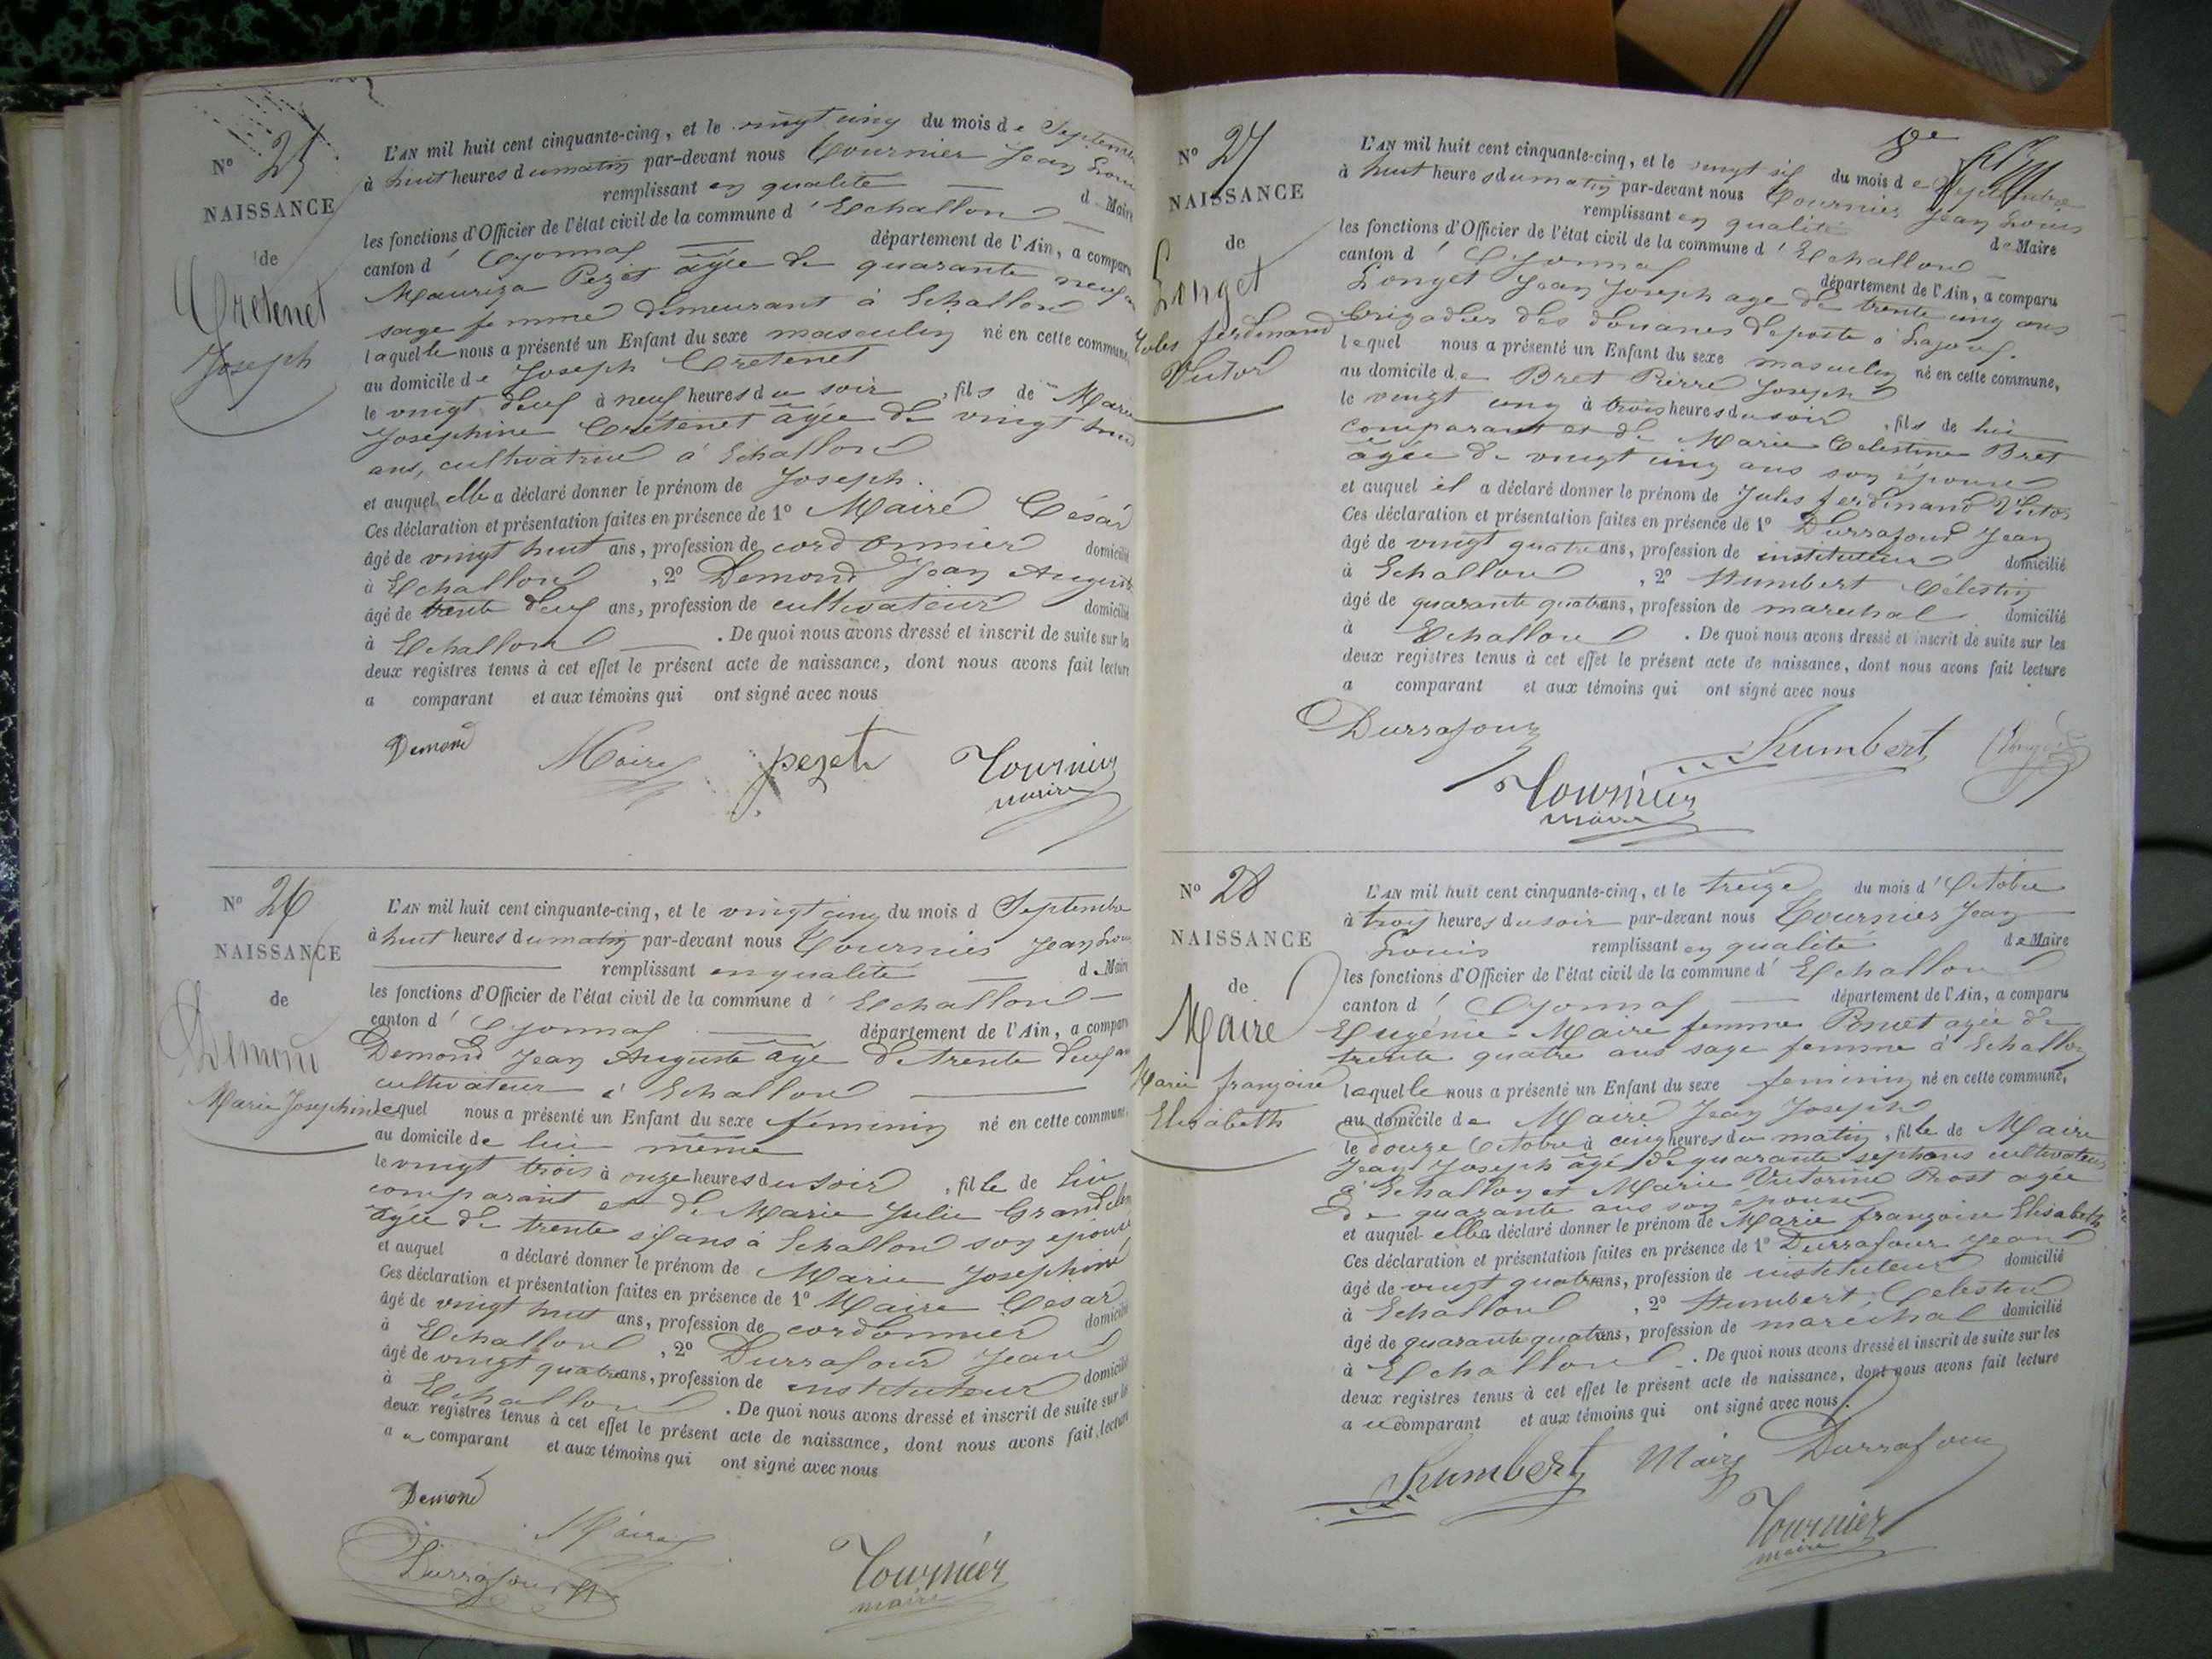 N° 25
NAISSANCE
de
Cretenet
Joseph
L'AN mil huit cent cinquante-cinq, et le vingt cinq du mois de Septembre
à huit heures du matin par-devant nous Tournier Jean Louis
remplissant en qualité de Maire
les fonctions d'Officier de l'état civil de la commune d'Echallon
canton d'Oyonnax département de l'Ain, a comparu
Pezet agée de quarante neuf ans
sage femme demeurant à Echallon
laquelle nous a présenté un Enfant du sexe masculin né en cette commune,
au domicile de Joseph Cretenet
le vingt deux à neuf heures du soir, fils de Marie
Josephine Cretenet agée de vingt huit
ans, cultivatrice à Echallon
et auquel elle a déclaré donner le prénom de Joseph.
Ces déclaration et présentation faites en présence de 1° Maire César
âgé de vingt huit ans, profession de cordonnier domicilié
à Echallon, 2° Demond Jean Auguste
âgé de trente deux ans, profession de cultivateur domicilié
à Echallon. De quoi nous avons dressé et inscrit de suite sur les
deux registres tenus à cet effet le présent acte de naissance, dont nous avons fait lecture
a comparant et aux témoins qui ont signé avec nous
Demond Maire pezet Tournier
maire
N° 26
NAISSANCE
de
Demond
Marie Josephine
L'AN mil huit cent cinquante-cinq, et le vingt cinq du mois d Septembre
à huit heures du matin par-devant nous Tournier Jean Louis
remplissant en qualité de Maire
les fonctions d'Officier de l'état civil de la commune d'Echallon
canton d'Oyonnax département de l'Ain, a comparu
Demond Jean Auguste age de trente deux ans
cultivateur à Echallon
lequel nous a présenté un Enfant du sexe féminin né en cette commune,
au domicile de lui même
le vingt trois à onze heures du soir, fille de lui
comparant et de Marie Julie
agée de trente six ans à Echallon son epouse
et auquel a déclaré donner le prénom de Marie Josephine
Ces déclaration et présentation faites en présence de 1° Maire Cesar
âgé de vingt huit ans, profession de cordonnier domicilié
à Echallon, 2° Durrafour Jean
âgé de vingt quatre ans, profession de instituteur domicilié
à Echallon. De quoi nous avons dressé et inscrit de suite sur les
deux registres tenus à cet effet le présent acte de naissance, dont nous avons fait lecture
au comparant et aux témoins qui ont signé avec nous
Demond
Maire
Durrafour Tournier
maire
8e
N° 27
NAISSANCE
de
Longet
Jules ferdinand
Victor
L'AN mil huit cent cinquante-cinq, et le vingt six du mois de Septembre
à huit heures du matin par-devant nous Tournier Jean Louis
remplissant en qualité de Maire
les fonctions d'Officier de l'état civil de la commune d'Echallon
canton d'Oyonnax département de l'Ain, a comparu
Longet Jean Joseph age de trente cinq ans
brigadier des douanes deposte à Lajoux.
lequel nous a présenté un Enfant du sexe masculin né en cette commune,
au domicile de Bret Pierre Joseph
le vingt cinq à trois heures du soir, fils de lui
comparant et de Marie Celestine Bret
agée de vingt cinq ans son épouse
et auquel il a déclaré donner le prénom de Jules ferdinand Victor
Ces déclaration et présentation faites en présence de 1° Durrafour Jean
âgé de vingt quatre ans, profession de instituteur domicilié
à Echallon, 2° Humbert Célestin
âgé de quarante quatre ans, profession de marechal domicilié
à Echallon. De quoi nous avons dressé et inscrit de suite sur les
deux registres tenus à cet effet le présent acte de naissance, dont nous avons fait lecture
a comparant et aux témoins qui ont signé avec nous
Durrafour Humbert Longet
Tournier
maire
N° 28
NAISSANCE
de
Maire
Marie françoise
Elisabeth
L'AN mil huit cent cinquante-cinq, et le treize du mois d'Octobre
à trois heures du soir par-devant nous Tournier Jean
Louis remplissant en qualité de Maire
les fonctions d'Officier de l'état civil de la commune d'Echallon
canton d'Oyonnax département de l'Ain, a comparu
Eugénie Maire femme agée de
trente quatre ans sage femme à Echallon
laquelle nous a présenté un Enfant du sexe feminin né en cette commune,
au domicile de Maire Jean Joseph
le douze Octobre à cinq heures du matin, fille de Maire
Jean Joseph agé de quarante sept ans cultivateur
à Echallon et Marie Victorine Prost agée
De quarante ans son epouse
et auquel elle a déclaré donner le prénom de Marie françoise Elisabeth
Ces déclaration et présentation faites en présence de 1° Durrafour Jean
âgé de vingt quatre ans, profession de instituteur domicilié
à Echallon, 2° Humbert Celestin
âgé de quarante quatre ans, profession de maréchal domicilié
à Echallon. De quoi nous avons dressé et inscrit de suite sur les
deux registres tenus à cet effet le présent acte de naissance, dont nous avons fait lecture
au comparant et aux témoins qui ont signé avec nous.
Humbert Maire Durrafour
Tournier
maire